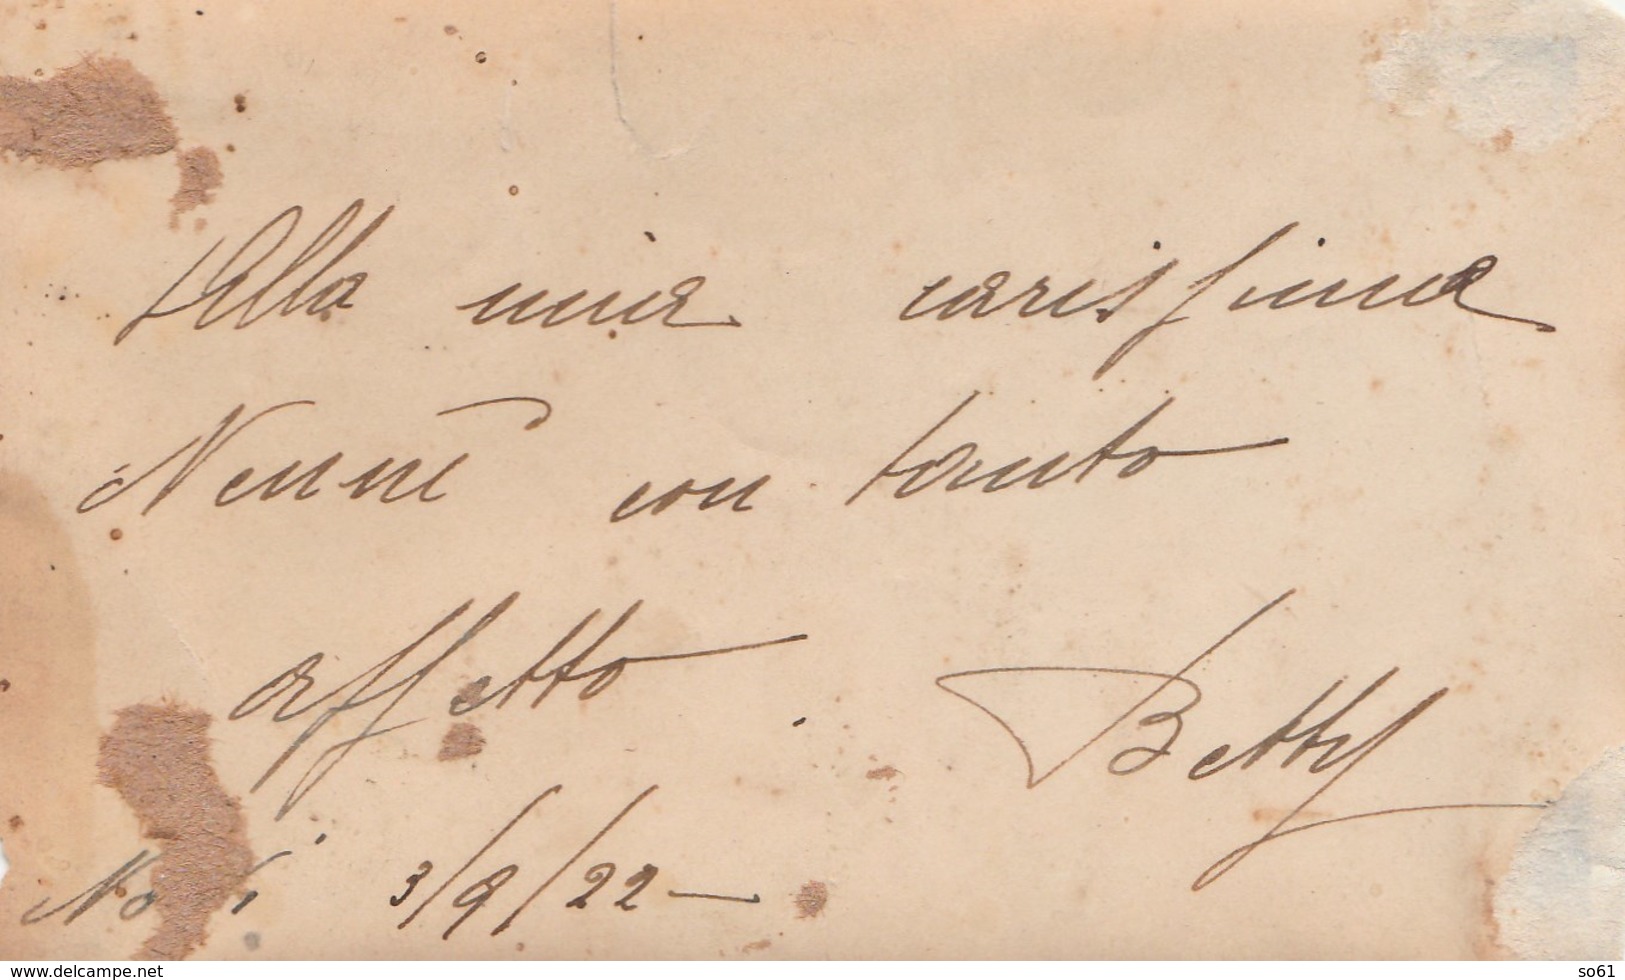 Alla mia carissima
Nennè con tanto
affetto Betty
3/9/22
www.delcampe.net so61